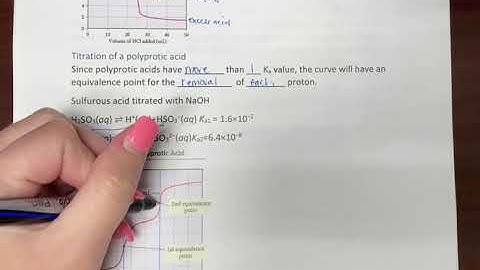 0 10 20 30 40 50
Volume of HCl added (mL)
excess acid
Titration of a polyprotic acid
Since polyprotic acids have more than 1 Kₐ value, the curve will have an
equivalence point for the removal of each proton.
Sulfurous acid titrated with NaOH
H₂SO₃(aq) ⇌ H⁺ HSO₃⁻(aq) Kₐ₁ = 1.6×10⁻²
(aq)Kₐ₂=6.4×10⁻⁸
Acid
2nd equivalence
point
1st equivalence
point